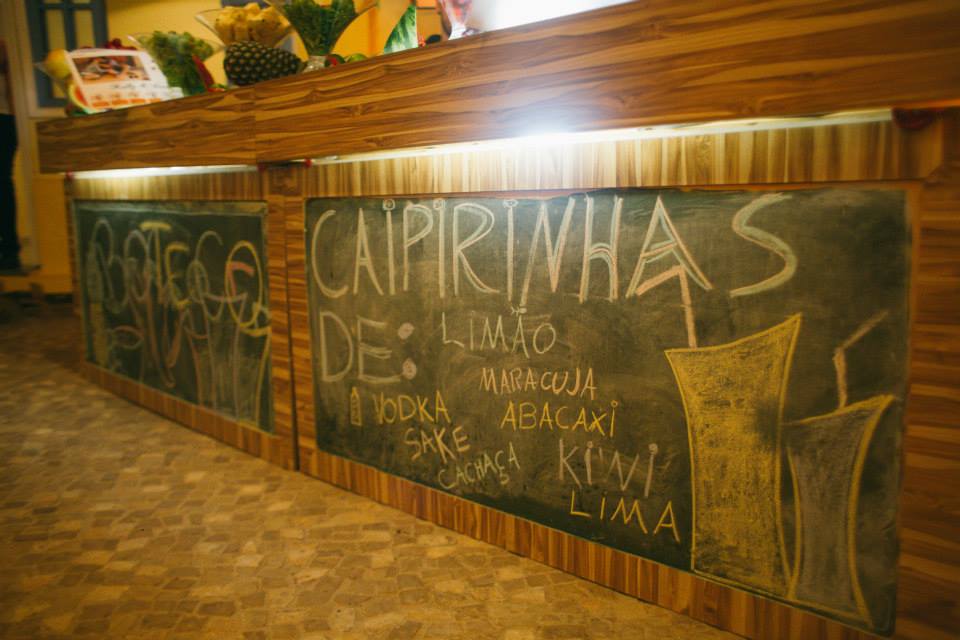 BOTECO
CAIPIRINHAS
DE:
LIMÃO
MARACUJA
ABACAXI
KIWI
LIMA
VODKA
SAKE
CACHAÇA